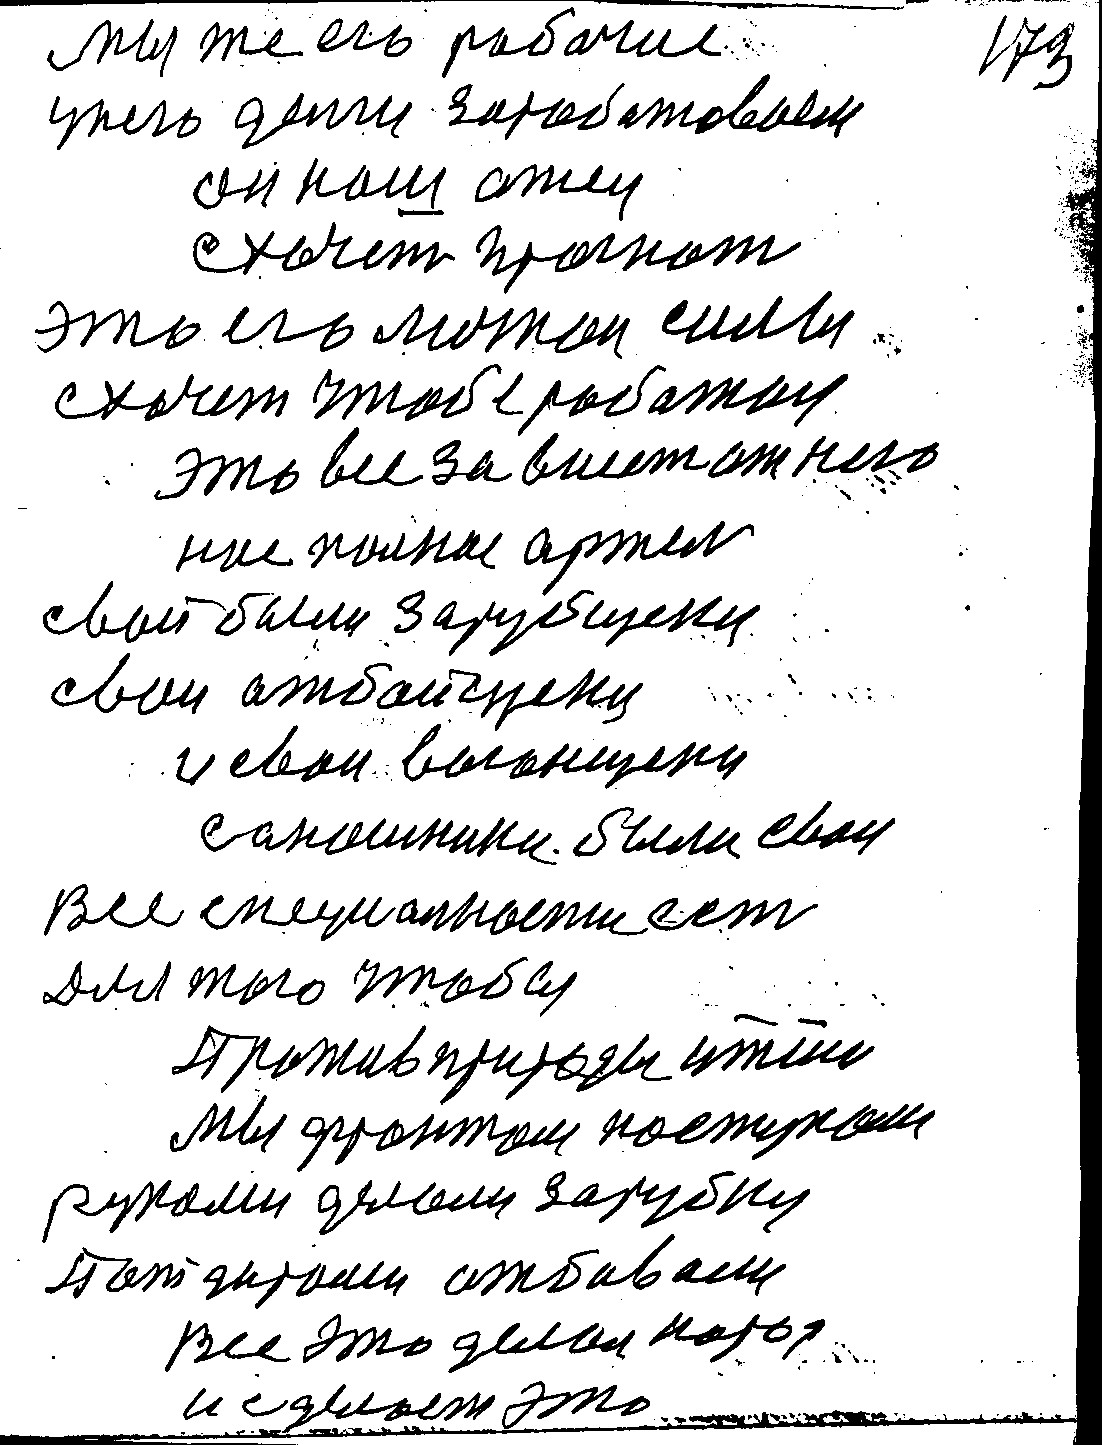 173
мы же его рабочие
унего денги заработоваем
он наш отец
схочет прогнат
это его мотои силы
схочет чтобе работои
это все зависет от него
нас полное артел
свои были зарубщеки
свои отбойщеки
и свои вагонщеки
саношники были свои
Все специалности ест
Для того чтобы
Против природы итти
мы фронтом наступали
руками делали зарубку
Подтдирами отбивали
Все это делал народ
и сделает это